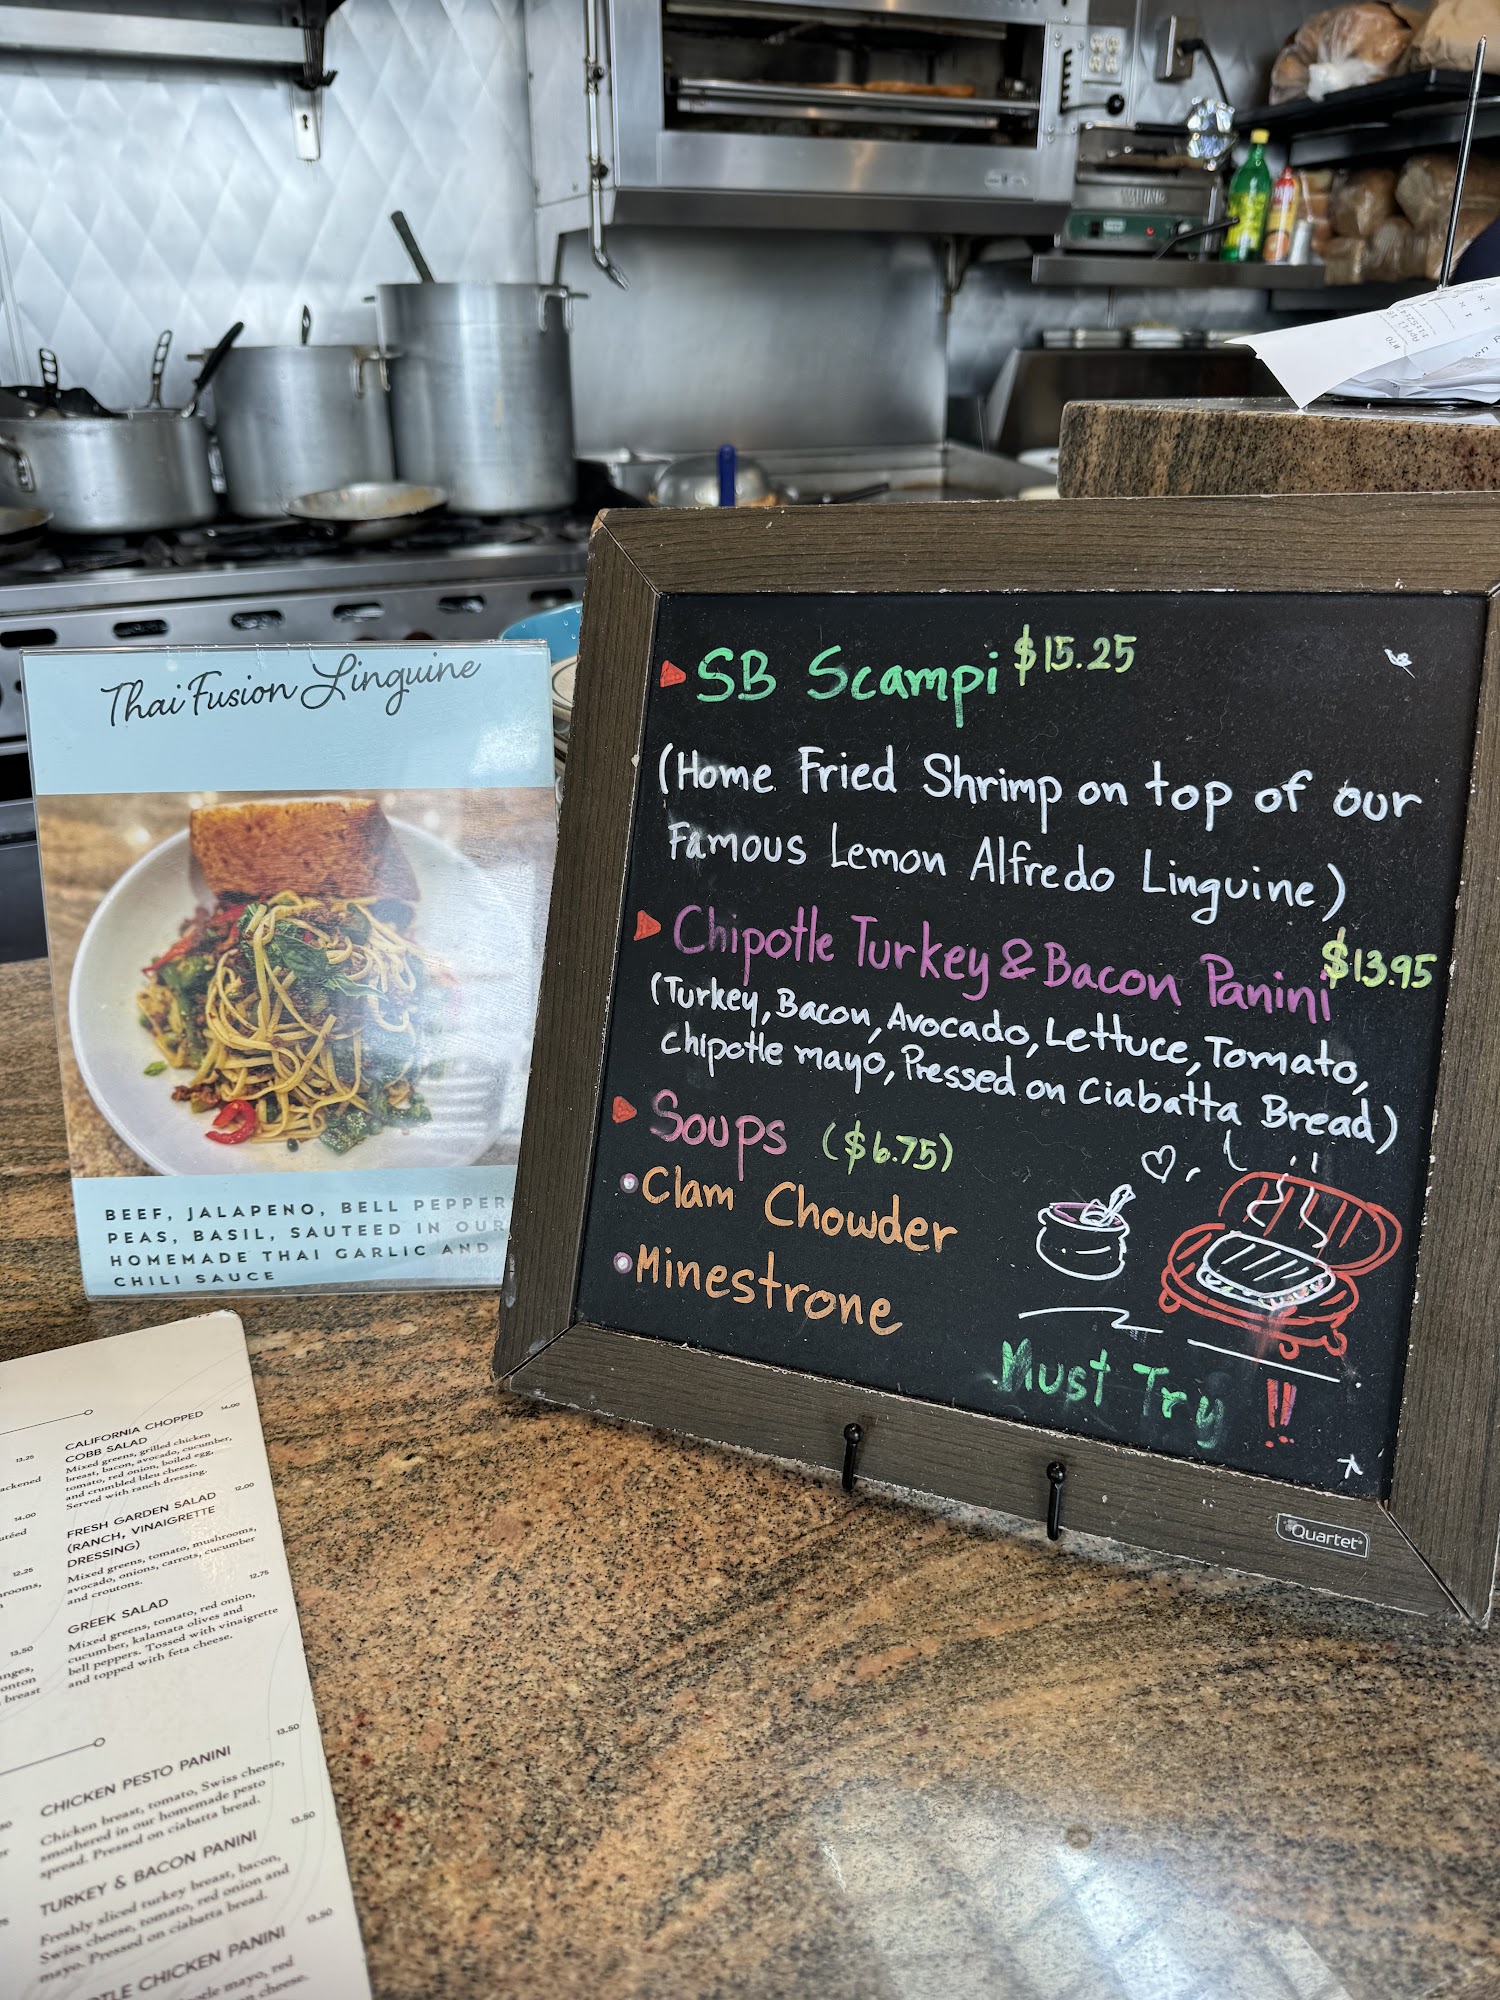 WARING
Thai Fusion Linguine
BEEF, JALAPENO, BELL PEPPER
PEAS, BASIL, SAUTEED IN OUR
HOMEMADE THAI GARLIC AND
CHILI SAUCE
SB Scampi $15.25
(Home Fried Shrimp on top of our
Famous Lemon Alfredo Linguine)
Chipotle Turkey & Bacon Panini $13.95
(Turkey, Bacon, Avocado, Lettuce, Tomato,
chipotle mayo, Pressed on Ciabatta Bread)
Soups ($6.75)
Clam Chowder
Minestrone
Must Try !!
Quartet
CALIFORNIA CHOPPED 14.00
COBB SALAD
Mixed greens, grilled chicken
breast, bacon, avocado, cucumber,
tomato, red onion, boiled egg,
and crumbled bleu cheese.
Served with ranch dressing.
FRESH GARDEN SALAD 12.00
(RANCH, VINAIGRETTE
DRESSING)
Mixed greens, tomato, mushrooms,
avocado, onions, carrots, cucumber
and croutons.
GREEK SALAD 12.75
Mixed greens, tomato, red onion,
cucumber, kalamata olives and
bell peppers. Tossed with vinaigrette
and topped with feta cheese.
13.25
14.00
12.25
13.50
breast
CHICKEN PESTO PANINI 13.50
Chicken breast, tomato, Swiss cheese,
smothered in our homemade pesto
spread. Pressed on ciabatta bread.
TURKEY & BACON PANINI 13.50
Freshly sliced turkey breast, bacon,
Swiss cheese, tomato, red onion and
mayo. Pressed on ciabatta bread.
CHICKEN PANINI 13.50
mayo, red
cheese.